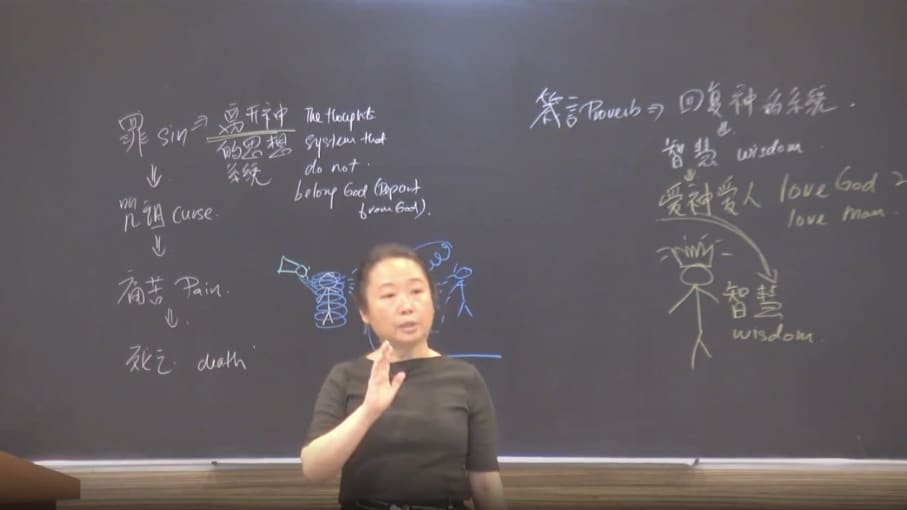 罪 sin ⇒ 离开神
的思想
系統
The thought
system that
do not
belong God (Depart
from God).
咒詛 curse.
痛苦 Pain.
死亡 death
箴言 Proverb ⇒ 回复神的系統.
智慧 wisdom.
爱神爱人 love God
love man.
智慧
wisdom.